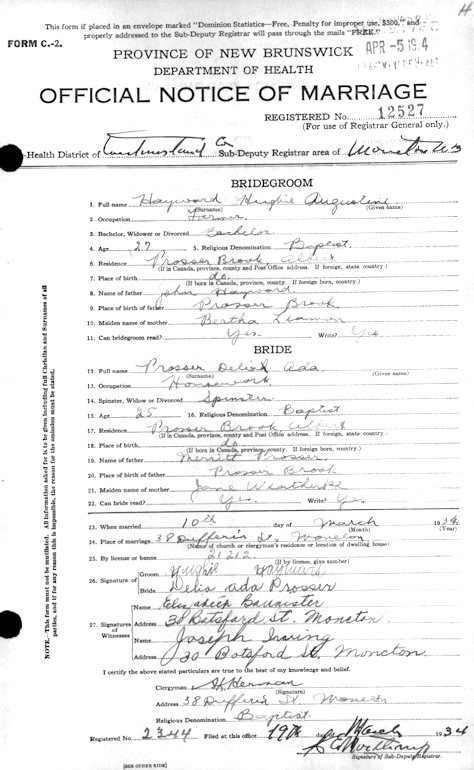 This form if placed in an envelope marked "Dominion Statistics—Free, Penalty for improper use, $300," and
properly addressed to the Sub-Deputy Registrar will pass through the mails "FREE."
FORM C.-2.
PROVINCE OF NEW BRUNSWICK
APR -5
DEPARTMENT OF HEALTH
OFFICIAL NOTICE OF MARRIAGE
REGISTERED No. 12527
(For use of Registrar General only.)
-Health District of Sub-Deputy Registrar area of Moncton
BRIDEGROOM
1. Full name Hayward Hughie Augustine
(Surname) (Given names)
2. Occupation Farmer
3. Bachelor, Widower or Divorced Bachelor
4. Age 27 5. Religious Denomination Baptist
6. Residence Prosser Brook, Albert
(If in Canada, province, county and Post Office address. If foreign, state country.)
7. Place of birth do.
(If born in Canada, province, county. If foreign born, country.)
8. Name of father John Hayward
9. Place of birth of father Prosser Brook
10. Maiden name of mother Bertha Leaman
11. Can bridegroom read? Yes. Write? Yes
BRIDE
12. Full name Prosser Ada
(Surname) (Given names)
13. Occupation Housework
14. Spinster, Widow or Divorced Spinster
15. Age 25 16. Religious Denomination Baptist
17. Residence Prosser Brook Albert
(If in Canada, province, county and Post Office address. If foreign, state country.)
18. Place of birth do
(If born in Canada, province, county. If foreign born, country.)
19. Name of father Merritt Prosser
20. Place of birth of father Prosser Brook
21. Maiden name of mother Jane
22. Can bride read? Yes. Write? Yes
23. When married 10th day of March 1934
(Month) (Year)
24. Place of marriage 38 Dufferin St, Moncton
(Name of church or clergyman's residence or location of dwelling house)
25. By license or banns 21212
(If by license, give number)
26. Signature of Groom Hughie Hayward
Bride Delia Ada Prosser
Name Elizabeth Bannister
27. Signatures of Witnesses Address 30 Botsford St. Moncton
Name Joseph Irving
Address 30 Botsford St. Moncton.
I certify the above stated particulars are true to the best of my knowledge and belief.
Clergyman Herman
(Signature)
Address 38 Dufferin St. Moncton
Religious Denomination Baptist
Registered No. 2344 Filed at this office 19th day of March 1934
Signature of Sub-Deputy Registrar.
[SEE OTHER SIDE]
NOTE.—This form must not be mutilated. All information asked for is to be given including full Christian and Surnames of all
parties, and if for any reason this is impossible, the reason for the omission must be stated.